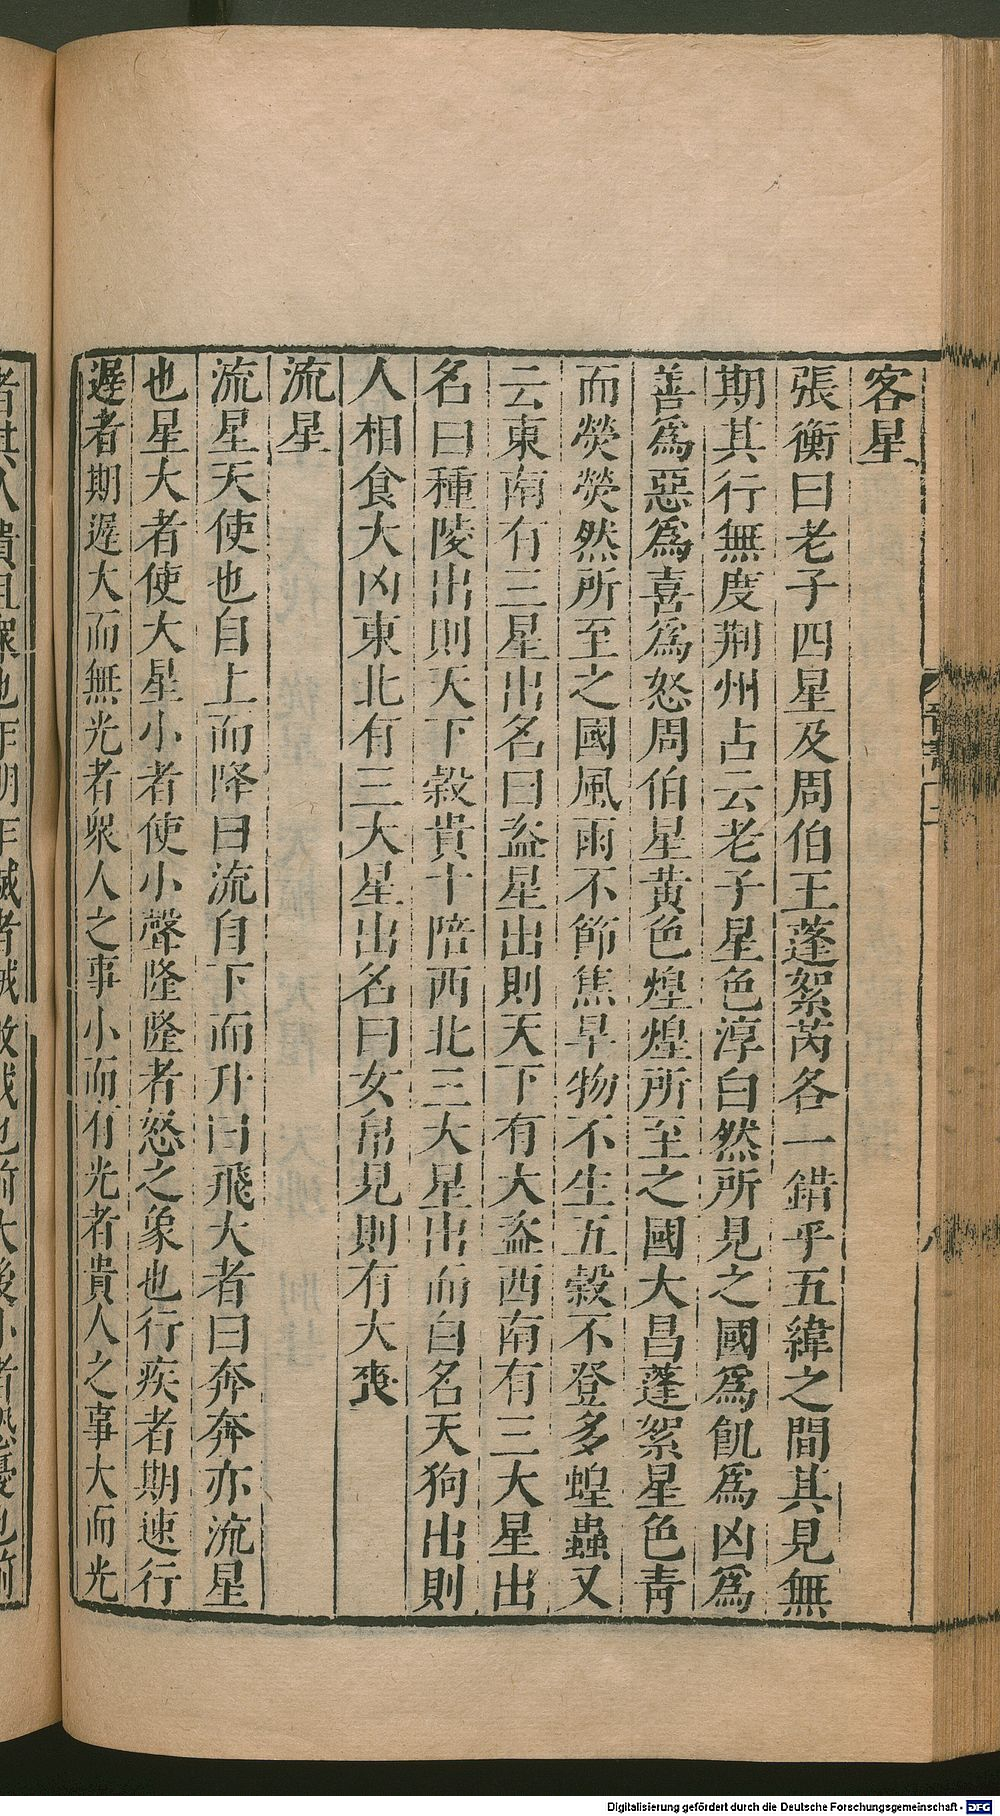 客星
張衡曰老子四星及周伯王蓬絮芮各一錯乎五緯之間其見無
期其行無度荆州占云老子星色淳白然所見之國爲飢爲凶爲
善爲惡爲喜爲怒周伯星黃色煌煌所至之國大昌蓬絮星色靑
而熒熒然所至之國風雨不節焦旱物不生五穀不登多蝗蟲又
云東南有三星出名曰盗星出則天下有大盗西南有三大星出
名曰種陵出則天下穀貴十陪西北三大星出而自名天狗出則
人相食大凶東北有三大星出名曰女帛見則有大喪
流星
流星天使也自上而降曰流自下而升曰飛大者曰奔奔亦流星
也星大者使大星小者使小聲隆隆者怒之象也行疾者期速行
遲者期遲大而無光者衆人之事小而有光者貴人之事大而光
Digitalisierung gefördert durch die Deutsche Forschungsgemeinschaft - DFG